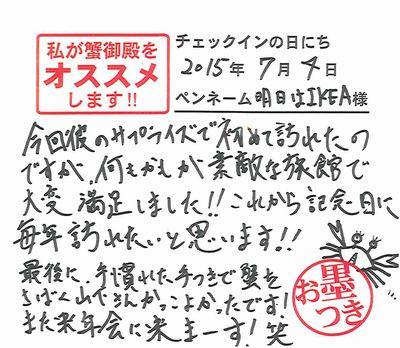 私が蟹御殿を
オススメ
します!!
チェックインの日にち
2015年 7月 4日
ペンネーム 明日はIKEA様
今回彼のサプライズで初めて訪れたの
ですが、何もかもが素敵な旅館で
大変満足しました!! これから記念日に
毎年訪れたいと思います!!
最後に、手慣れた手つきで蟹を
さばく山下さんかっこよかったです!
また来年会に来まーす! 笑
お墨つき